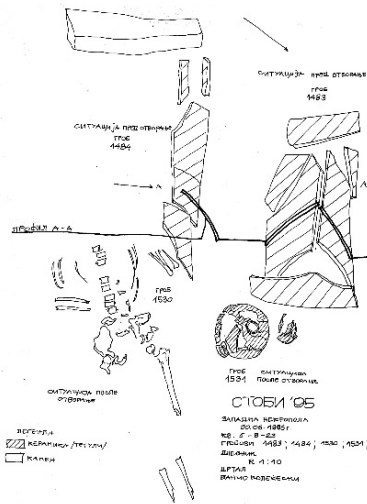 СИТУАЦИЈА ПРЕД ОТВОРАЊЕ
ГРОБ
1483
СИТУАЦИЈА ПРЕД ОТВОРАЊЕ
ГРОБ
1484
А
А
ПРОФИЛ А-А
ГРОБ
1530
СИТУАЦИЈА ПОСЛЕ
ОТВОРАЊЕ
ГРОБ СИТУАЦИЈА
1531 ПОСЛЕ ОТВОРАЊЕ
СТОБИ '95
ЗАПАДНА НЕКРОПОЛА
КВ.
ГРОБОВИ 1483; 1484; 1530; 1531;
ДНЕВНИК
Р 1:10
ЦРТАЛ
ЛЕГЕНДА
КЕРАМИКА /ТЕГУЛИ/
КАМЕН